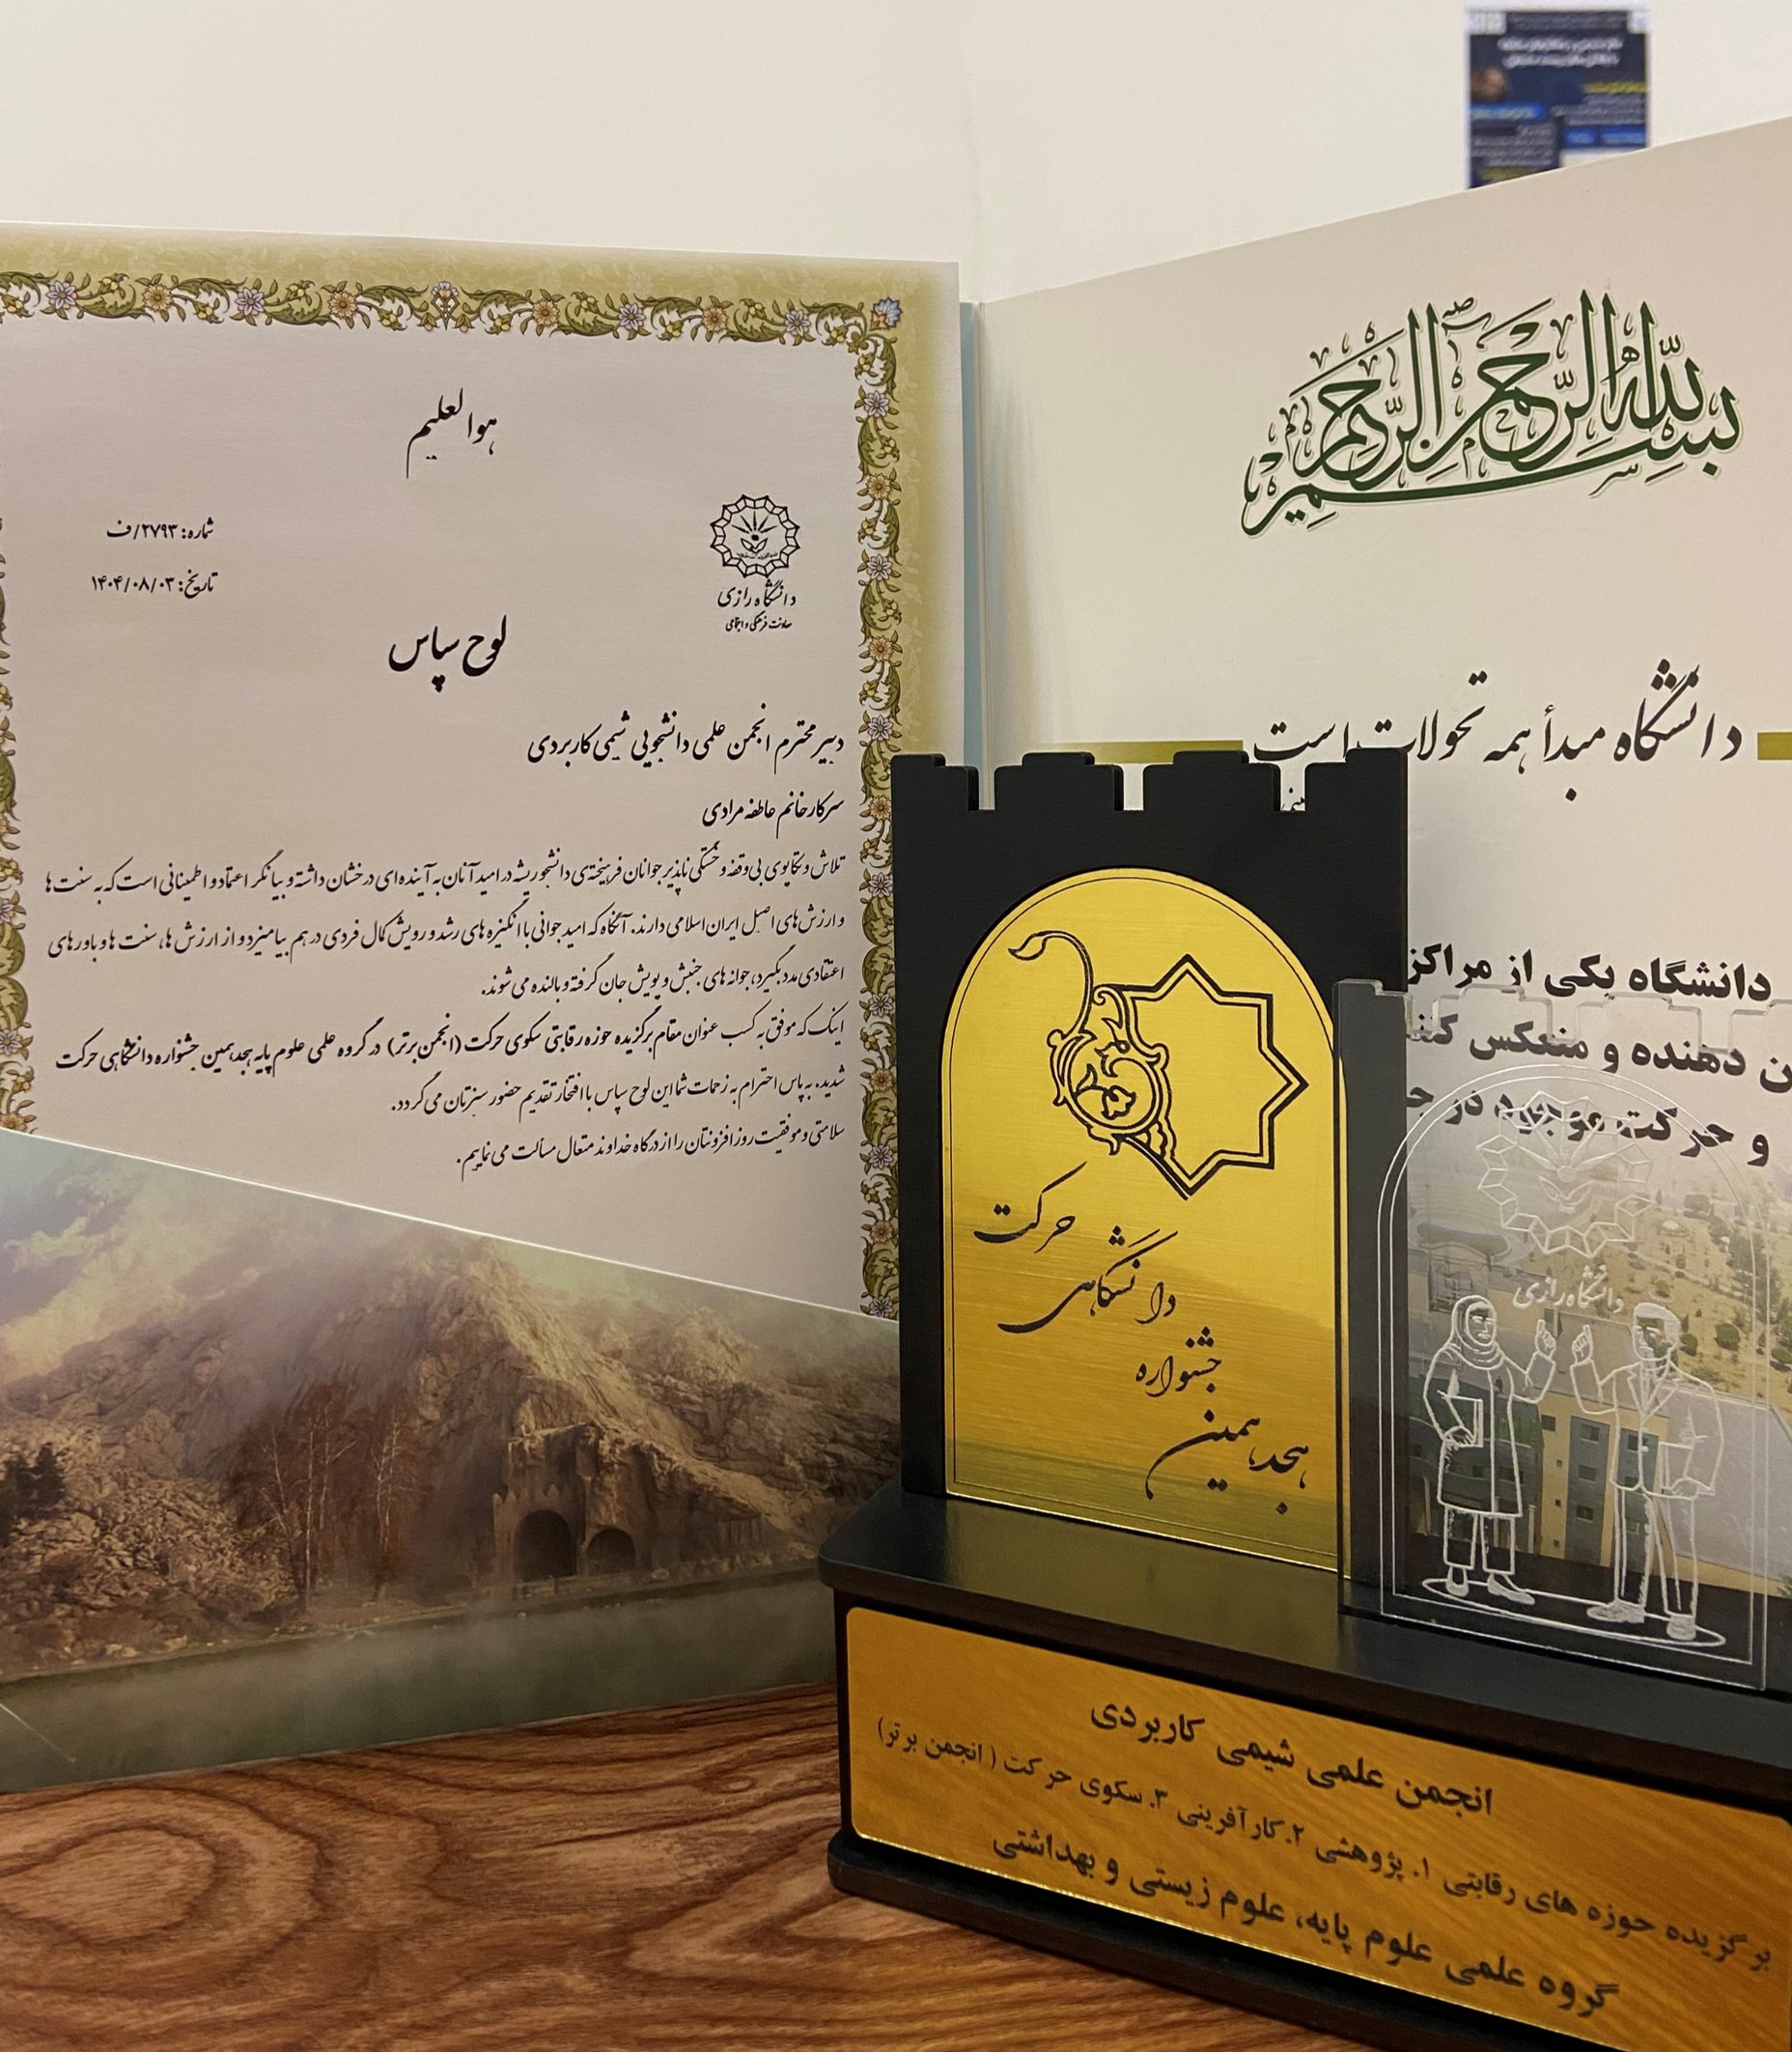 هوالعلیم
شماره: ۲۷۹۳/ف
تاریخ: ۱۴۰۴/۰۸/۰۳
دانشگاه رازی
معاونت فرهنگی و اجتماعی
لوح سپاس
دبیر محترم انجمن علمی دانشجویی شیمی کاربردی
سرکار خانم عاطفه مرادی
تلاش و تکاپوی بی‌وقفه و خستگی ناپذیر جوانان فرهیخته‌ی دانشجو ریشه در امید آنان به آینده‌ای درخشان داشته و بیانگر اعتماد و اطمینانی است که به سنت ها
و ارزش‌های اصیل ایران اسلامی دارند. آنگاه که امید جوانی با انگیزه های رشد و رویش کمال فردی در هم بیامیزد و از ارزش ها، سنت ها و باورهای
اعتقادی مدد بگیرد، جوانه های جنبش و پویش جان گرفته و بالنده می شوند.
اینک که موفق به کسب عنوان مقام برگزیده حوزه رقابتی سکوی حرکت (انجمن برتر) در گروه علمی علوم پایه هجدهمین جشنواره دانشگاهی حرکت
شدید، به پاس احترام به زحمات شما این لوح سپاس با افتخار تقدیم حضور سبزتان می گردد.
سلامتی و موفقیت روزافزونتان را از درگاه خداوند متعال مسألت می نماییم.
بسم الله الرحمن الرحیم
دانشگاه مبدأ همه تحولات است
دانشگاه یکی از مراکز
دهنده و منعکس
و حرکت موجود در
حرکت
دانشگاهی
جشنواره
هجدهمین
دانشگاه رازی
انجمن علمی شیمی کاربردی
برگزیده حوزه های رقابتی ۱. پژوهشی ۲. کارآفرینی ۳. سکوی حرکت (انجمن برتر)
گروه علمی علوم پایه، علوم زیستی و بهداشتی